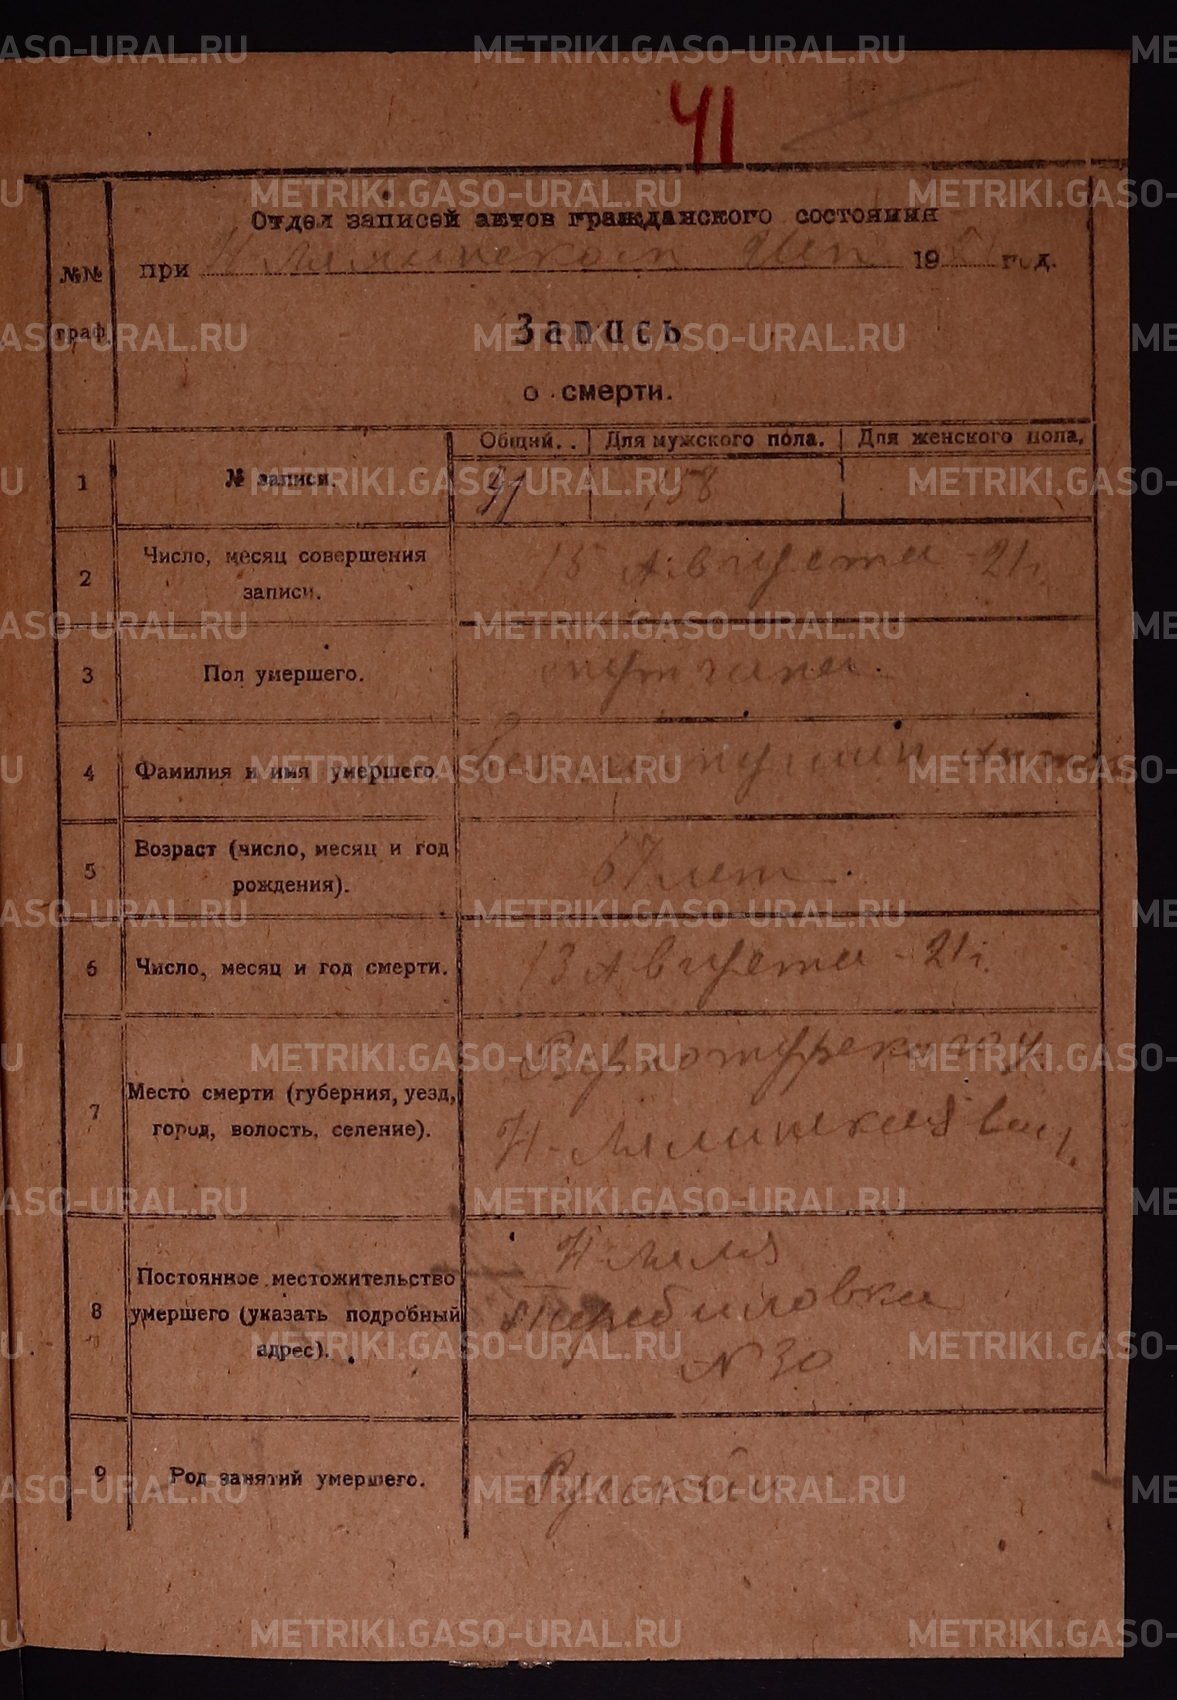 41
Отдел записей актов гражданского состояния
при Н-Лялинском 19 год.
№№ граф.
Запись
о смерти.
Общий. Для мужского пола. Для женского пола.
1 № записи. 158
2 Число, месяц совершения записи. 15 Августа 21 г.
3 Пол умершего. мужчина.
4 Фамилия и имя умершего.
5 Возраст (число, месяц и год рождения). 67 лет.
6 Число, месяц и год смерти. 13 Августа - 21 г.
7 Место смерти (губерния, уезд, город, волость, селение). Верхотурского у.
Н-Лялинская вол.
8 Постоянное местожительство умершего (указать подробный адрес). Н-Ляля
№ 30
9 Род занятий умершего.
METRIKI.GASO-URAL.RU